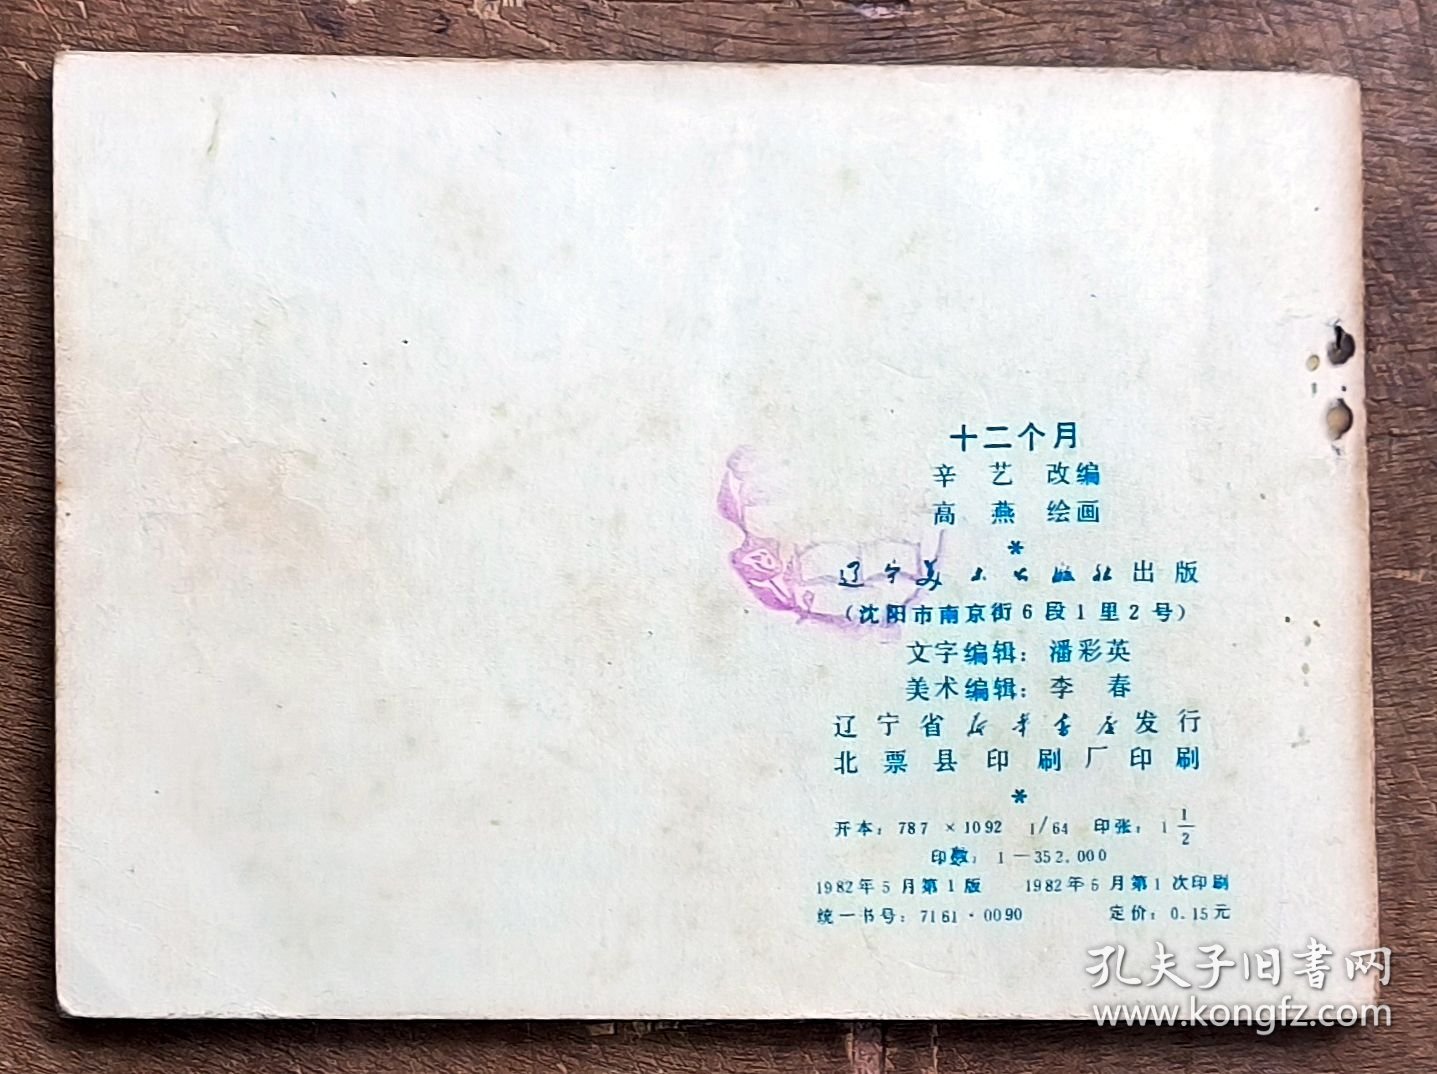 十二个月
辛艺 改编
高燕 绘画
*
辽宁美术出版社出版
(沈阳市南京街6段1里2号)
文字编辑：潘彩英
美术编辑：李春
辽宁省新华书店发行
北票县印刷厂印刷
*
开本：787×1092 1/64 印张：1 1/2
印数：1—352.000
1982年5月第1版 1982年5月第1次印刷
统一书号：7161·0090 定价：0.15元
孔夫子旧書网
www.kongfz.com